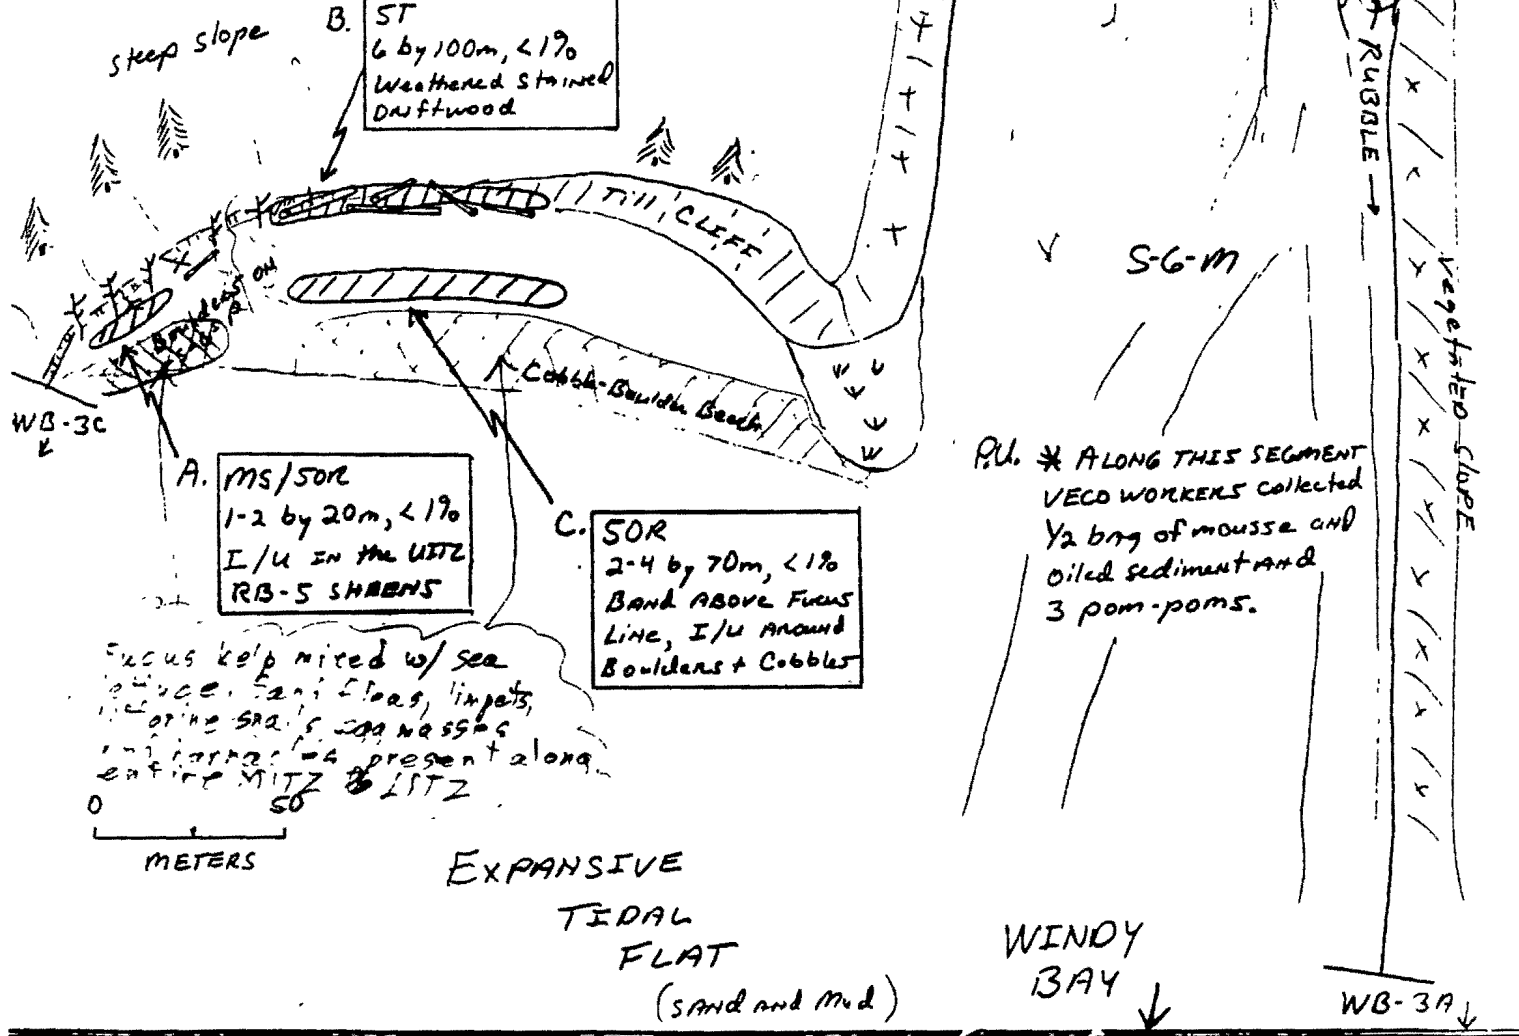 steep slope
B.
ST
6 by 100m, <1%
Weathered Stained
Driftwood
Till CLIFF
RUBBLE →
S-6-M
Vegetated slope
Boulders on
Cobble-Boulder Beach
WB-3C
A.
MS/SOR
1-2 by 20m, <1%
I/U IN the UITZ
RB-5 SHEENS
C.
SOR
2-4 by 70m, <1%
BAND ABOVE FUCUS
LINE, I/U AROUND
Boulders + Cobbles
P.U. * ALONG THIS SEGMENT
VECO WORKERS collected
1/2 bag of mousse AND
oiled sediment AND
3 pom-poms.
Fucus kelp mixed w/ sea
limpets,
egg masses
present along
entire MITZ LITZ
0 50
METERS
EXPANSIVE
TIDAL
FLAT
(SAND AND Mud)
WINDY
BAY
WB-3A